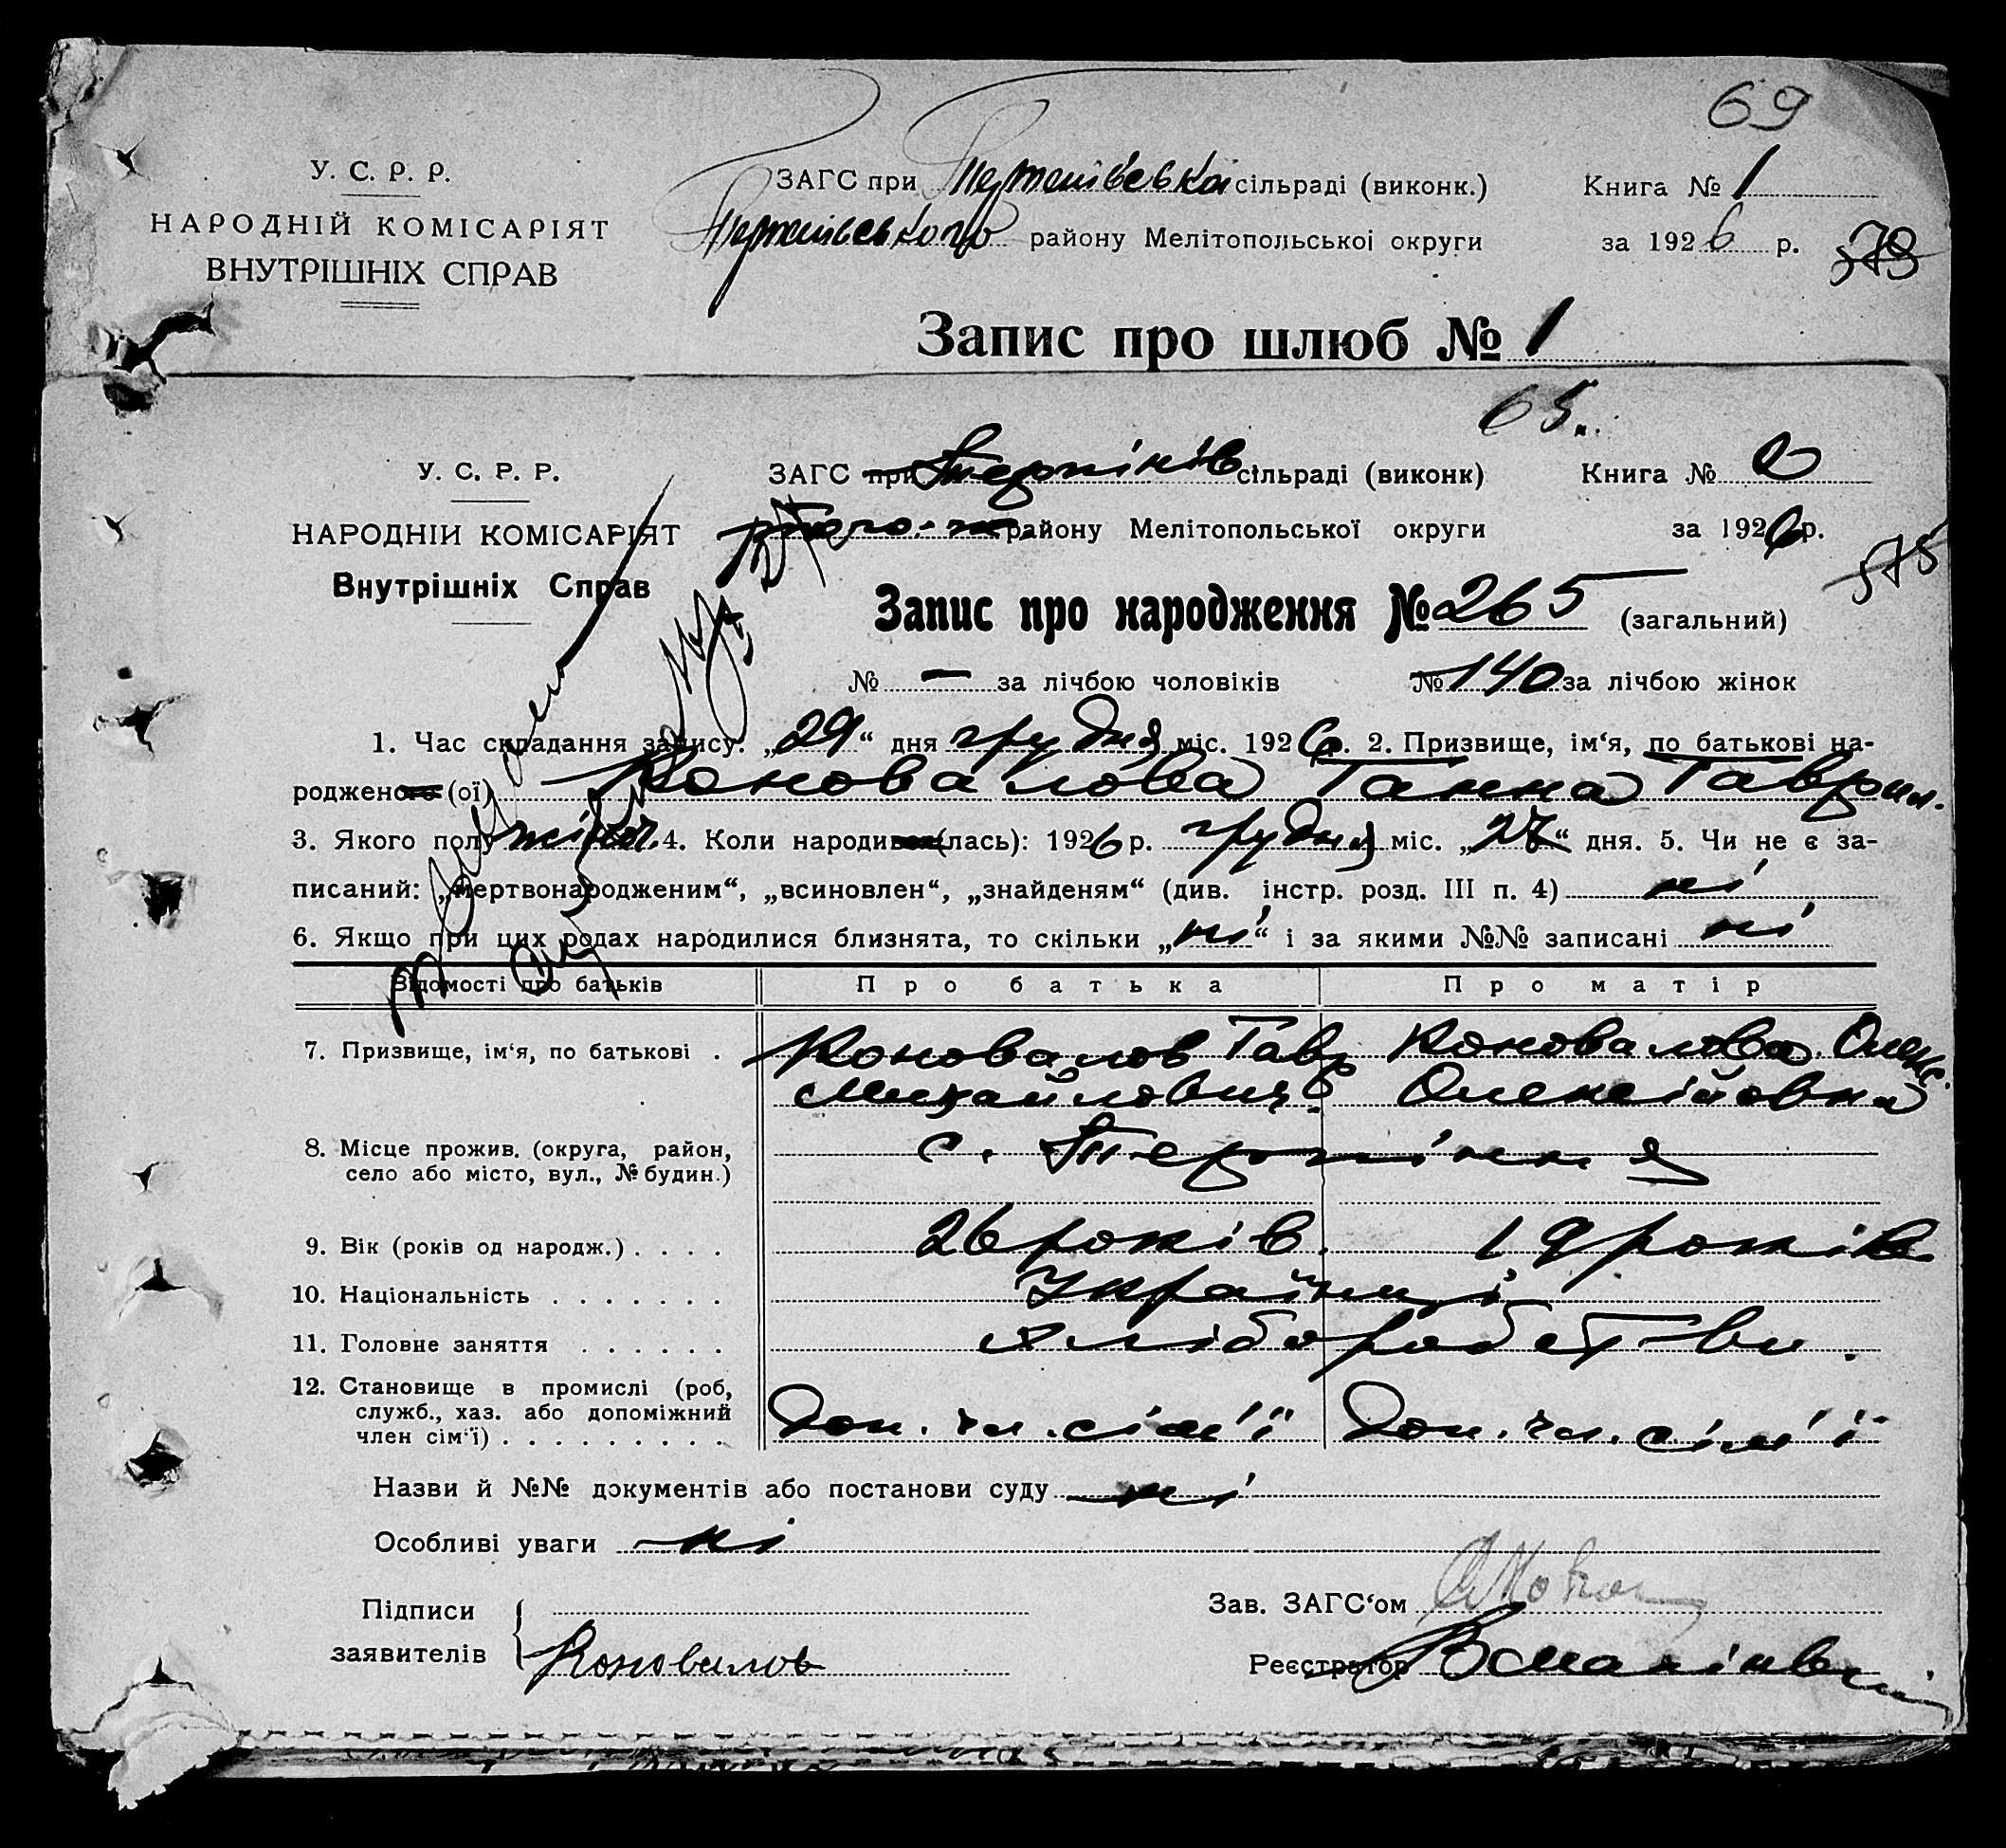 69
У. С. Р. Р.
НАРОДНІЙ КОМІСАРІЯТ
ВНУТРІШНІХ СПРАВ
ЗАГС при сільраді (виконк.)
району Мелітопольськоі округи
Книга № 1
за 1926 р.
Запис про шлюб № 1
65
У. С. Р. Р.
НАРОДНІИ КОМІСАРІЯТ
Внутрішніх Справ
ЗАГС при Терпінів сільраді (виконк)
району Мелітопольської округи
Книга № 2
за 1926 р.
575
Запис про народження № 265 (загальний)
№ — за лічбою чоловіків № 140 за лічбою жінок
1. Час складання запису: „29“ дня грудня міс. 1926 р. 2. Призвище, ім‘я, по батькові на-
родженого (ої) Коновалова Ганна Гаврил.
3. Якого полу жіноч. 4. Коли народився (лась): 1926 р. грудня міс. „27“ дня. 5. Чи не є за-
писаний: „мертвонародженим“, „всиновлен“, „знайденям“ (див. інстр. розд. III п. 4) ні
6. Якщо при цих родах народилися близнята, то скільки „ні“ і за якими №№ записані ні
Відомості про батьків Про батька Про матір
7. Призвище, ім‘я, по батькові . Коновалов Гавр Коновалова Олекс.
Михайлович Олексіївна
8. Місце прожив. (округа, район,
село або місто, вул., № будин.) с. Терпіння
9. Вік (років од народж.) . . . . 26 років. 19 років
10. Національність . . . . . . . Українці
11. Головне заняття . . . . . . хліборобство.
12. Становище в промислі (роб,
служб., хаз. або допоміжний
член сім‘ї) . . . . . . . . . Доп. чл. сім'ї Доп. чл. сім'ї
Назви й №№ документів або постанови суду ні
Особливі уваги ні
Підписи
заявителів Коновалов
Зав. ЗАГС‘ом
Реєстратор